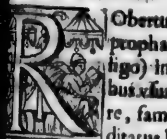 RObertu
propha
ſigo) in
bus vſu
re, fam